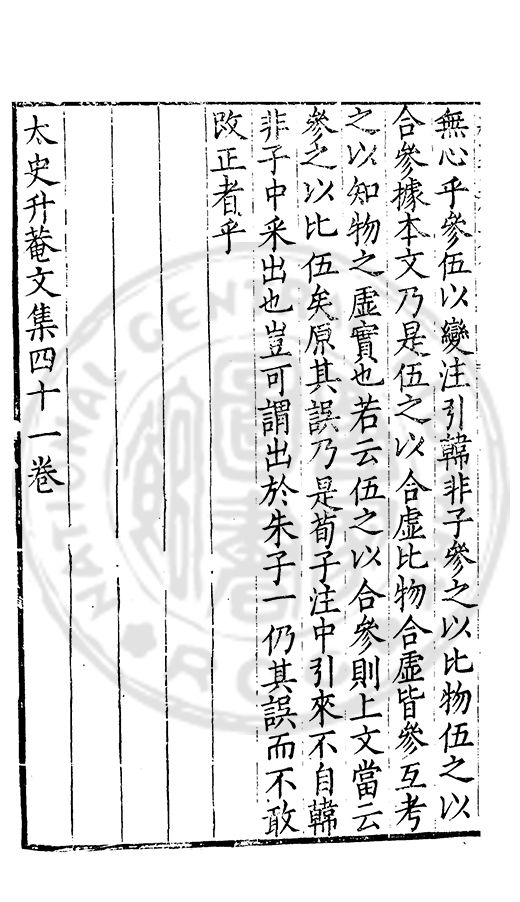 無心乎參伍以變注引韓非子參之以比物伍之以
合參據本文乃是伍之以合虛比物合虛皆參互考
之以知物之虛實也若云伍之以合參則上文當云
參之以比伍矣原其誤乃是荀子注中引來不自韓
非子中采出也豈可謂出於朱子一仍其誤而不敢
改正者乎
太史升菴文集四十一卷